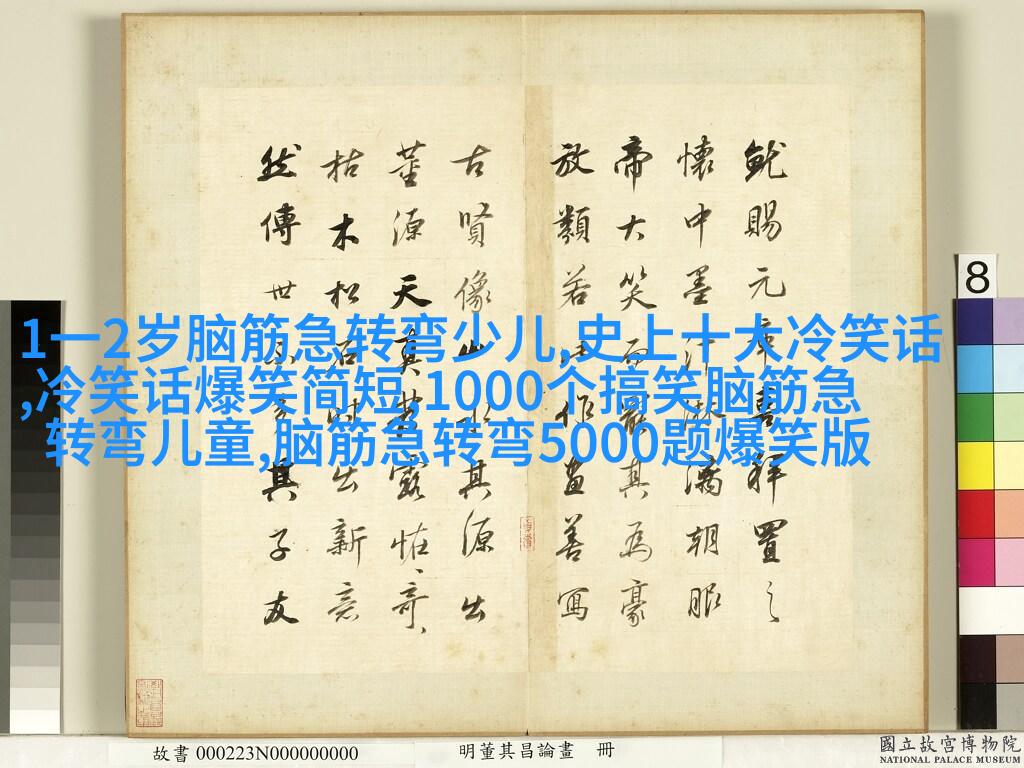 就賜元章拜置之
懷中墨汁淋漓朝服
帝大笑而罷其為豪
放類若此作畫善寫
古賢像山水其源出
董源天真發露怪、奇、
枯木松石時出新意
然傳世不多其子友
1一2岁脑筋急转弯少儿,史上十大冷笑话
,冷笑话爆笑简短,1000个搞笑脑筋急
转弯儿童,脑筋急转弯5000题爆笑版
8
故書 000223N000000000
明董其昌論畫 冊
國立故宮博物院
NATIONAL PALACE MUSEUM